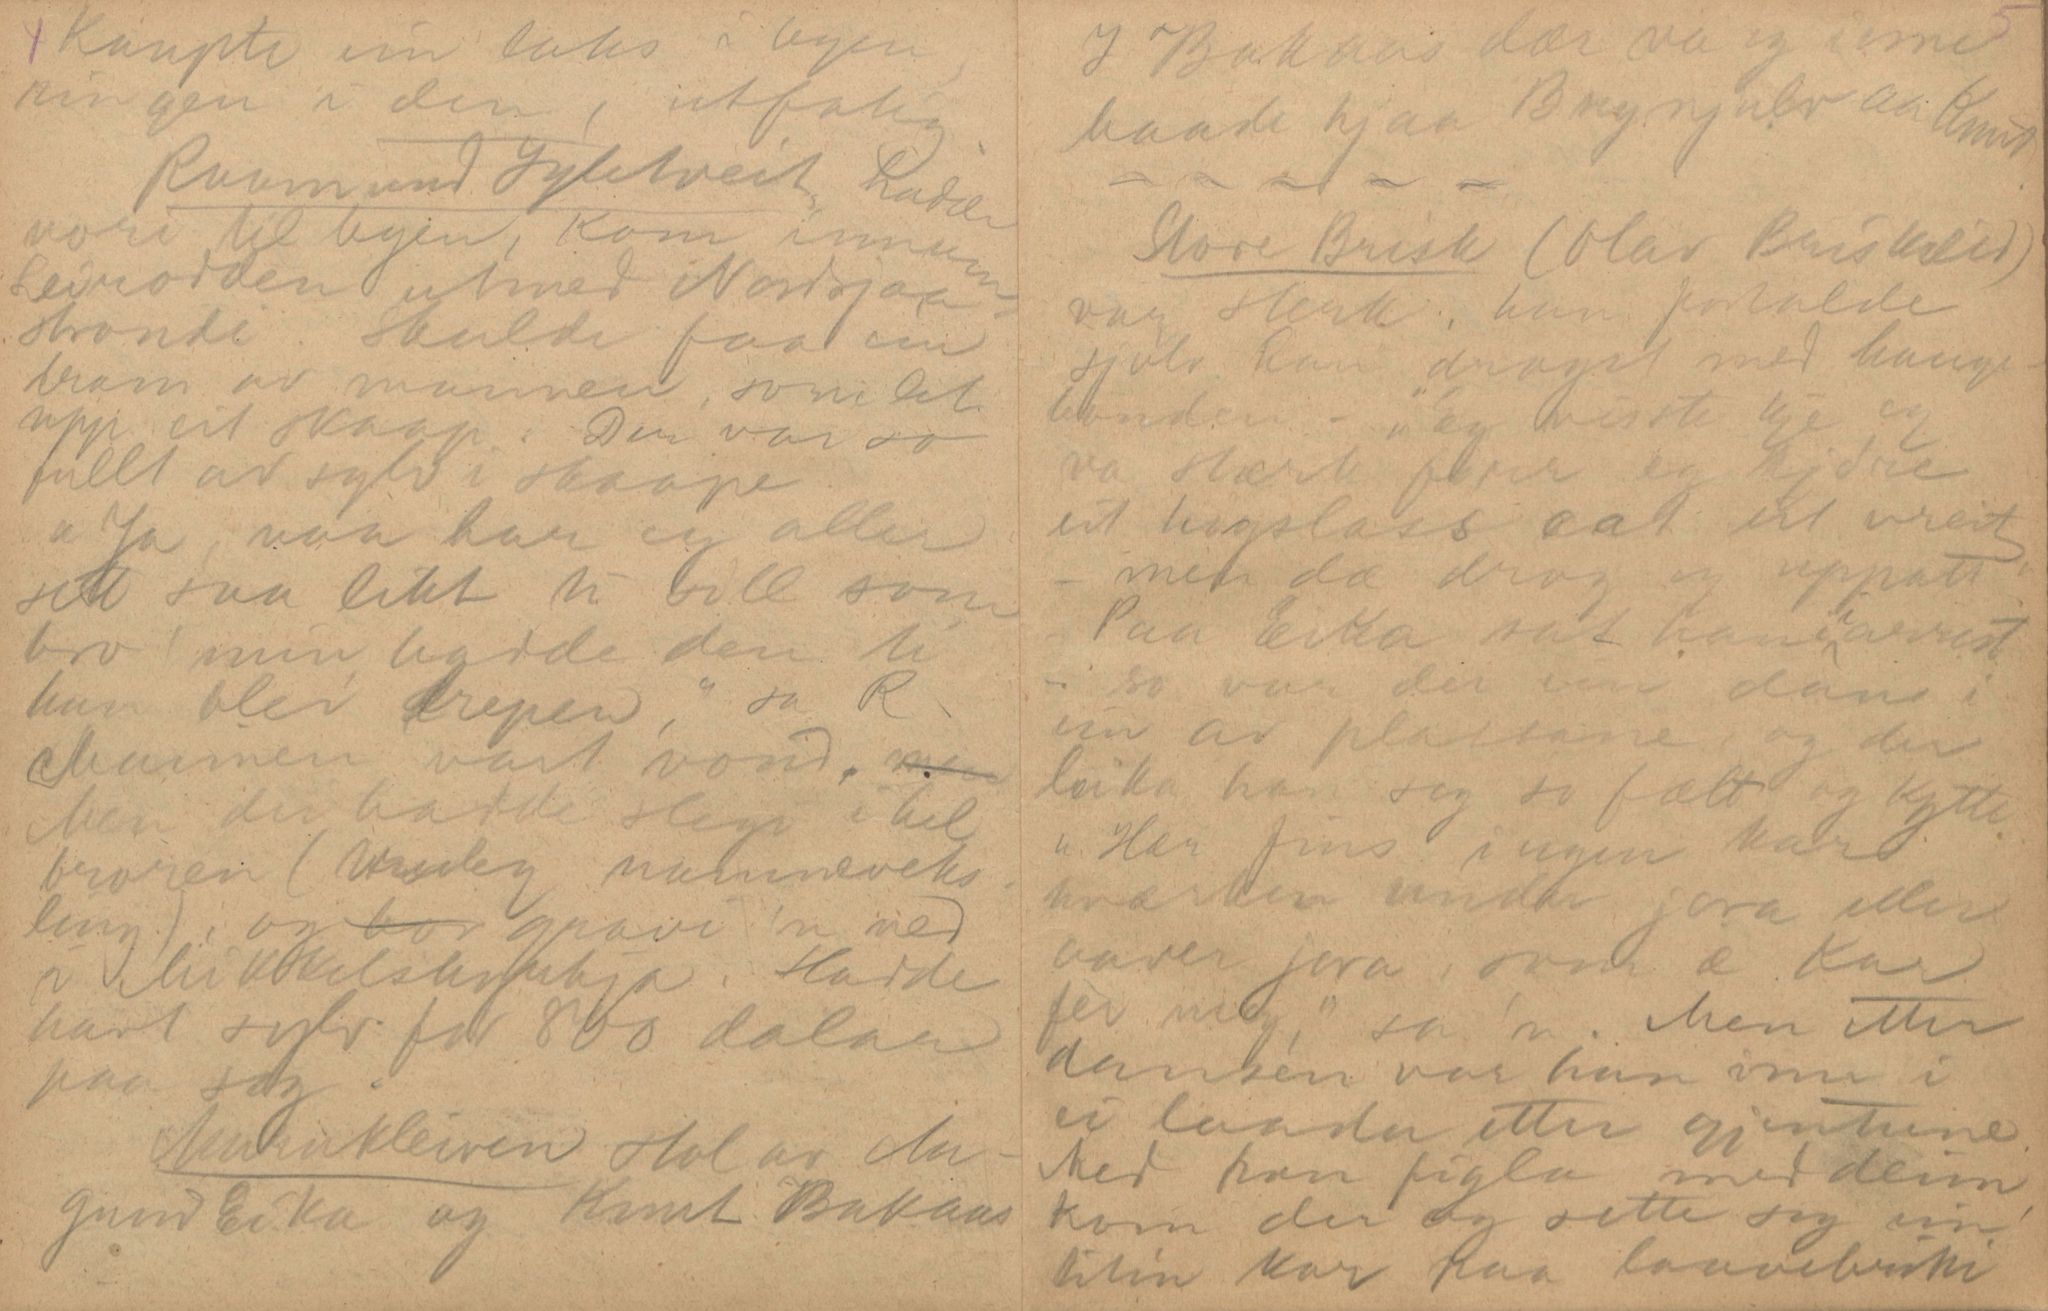 Kaupte ein laks i byen,
ringen i den, utfatig
Raamund Sylvtveit, hadde
vori til byen, kom innum
Leirodden utmed Nordsjaa-
strondi. Skulde faa ein
dram av mannen, som let
upp eit skaap. Der var so
fullt av sylv i skaape
"Ja, naa har eg aller
sett saa likt ti sill som
bro' min hadde den ti
han blei drepen," sa R.
Mannen vart vond.
Men der hadde slege ihel
broren ( namneveks-
ling), og gravi 'n ned
i Mikkels. Hadde
havt sylv for 800 dalar
paa seg.
stal av Aa-
gund Eika og Knut Bakaas
5
I Bakaas dær va eg inne
baade hjaa Brynjulv aa Knut
Store Brisk (Olav Briskeid)
var sterk, han fortalde
sjølv han drogst med hauge-
bonden - "eg visste kje eg
va stærk fyrr eg kjøre
eit høgslass aat eit vreit
- men dæ drog eg uppatt"
- Paa Eika sat han i arrest
- so var der ein dans i
ein av plassane, og der
leika han seg so fælt og kytte.
"Hær fins ingen kar
hværken under jora eller
aaver jora, som æ kar
fer meg," sa 'n. Men etter
dansen var han inne i
ei laadu etter gjentune.
Med han figla med deim
kom der og sette seg ein
liten kar paa laavebriki